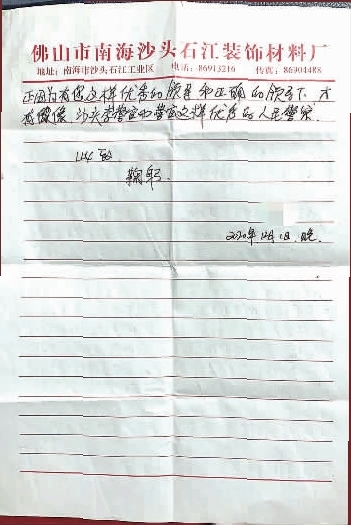 佛山市南海沙头石江装饰材料厂
地址：南海市沙头石江工业区 电话：86913216 传真：86904488
正因为有您这样优秀的领导和正确的领导下，才
有像 沙头 警官和 警官这样优秀的人民警察.
此致
鞠躬
2020年12月1日.晚.